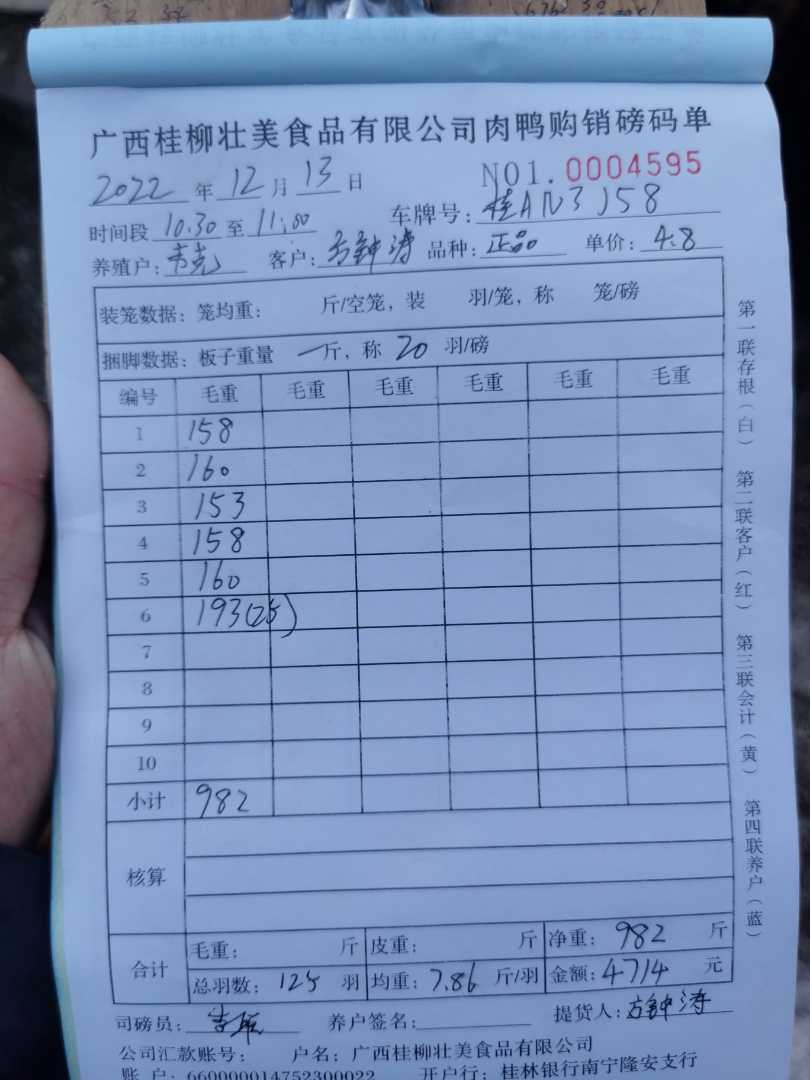 广西桂柳壮美食品有限公司肉鸭购销磅码单
2022 年 12 月 13 日 NO1.0004595
时间段 10.30 至 11.00 车牌号: 桂AN3J58
养殖户: 韦克 客户: 方钟涛 品种: 正品 单价: 4.8
装笼数据: 笼均重: 斤/空笼, 装 羽/笼, 称 笼/磅
捆脚数据: 板子重量 一斤, 称 20 羽/磅
编号 毛重 毛重 毛重 毛重 毛重 毛重
1 158
2 160
3 153
4 158
5 160
6 193(25)
7
8
9
10
小计 982
核算
合计
毛重: 斤 皮重: 斤 净重: 982 斤
总羽数: 125 羽 均重: 7.86 斤/羽 金额: 4714 元
司磅员: 养户签名: 提货人: 方钟涛
公司汇款账号: 户名: 广西桂柳壮美食品有限公司
账 户: 660000014752300022 开户行: 桂林银行南宁隆安支行
第一联存根(白) 第二联客户(红) 第三联会计(黄) 第四联养户(蓝)